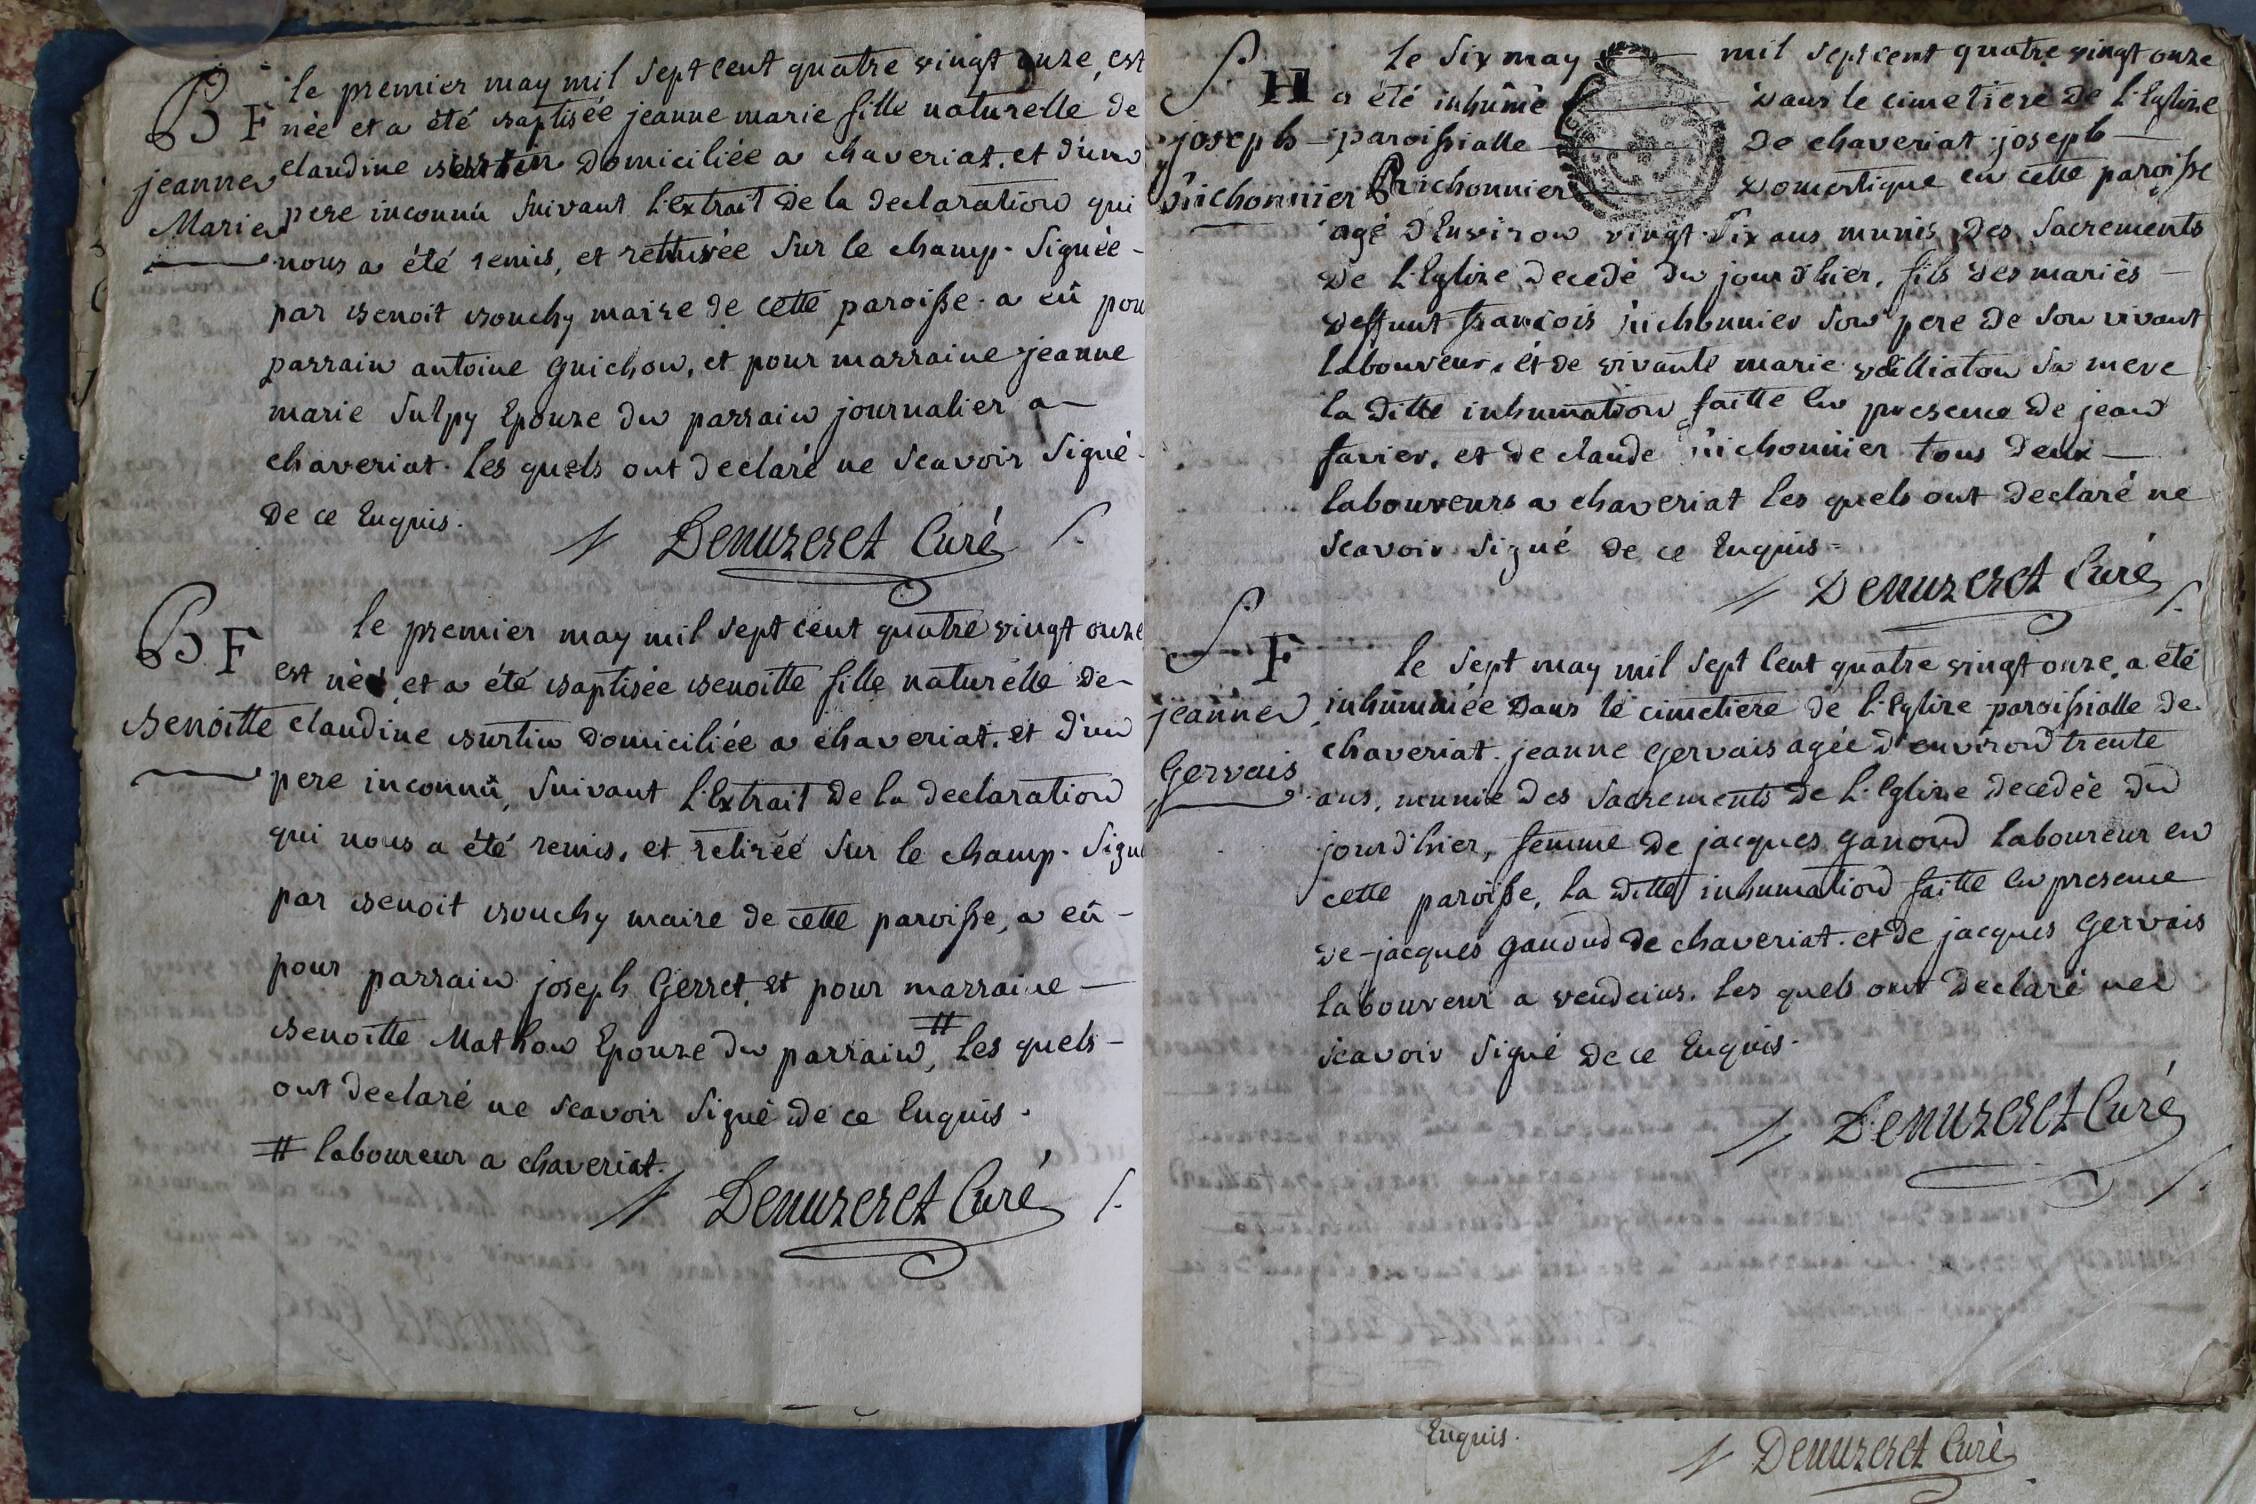 B F
jeanne
Marie
le premier may mil sept cent quatre vingt onze, est
née et a été baptisée jeanne marie fille naturelle de
claudine domiciliée a chaveriat. et d'un
pere inconnû suivant l'extrait de la declaration qui
nous a été remis, et retirée sur le champ. signée -
par benoit bouchy maire de cette paroisse. a eû pou
parrain antoine guichon, et pour marraine jeanne
marie sulpy Epouze du parrain journalier a —
chaveriat. les quels ont declaré ne scavoir signé -
de ce Enquis.
Denuzeret Curé
B F
benoitte
le premier may mil sept cent quatre vingt onze
est née et a été baptisée benoitte fille naturelle de -
claudine burtin domiciliée a chaveriat. et d'un
pere inconnû, suivant l'Extrait de la declaration
qui nous a été remis, et retirée sur le champ. signé
par benoit bouchy maire de cette paroisse, a eû -
pour parrain joseph Gerret, et pour marraine —
benoitte Mathon Epouze du parrain #, les quels -
ont declaré ne scavoir signé de ce Enquis.
# laboureur a chaveriat.
Denuzeret Curé
S H
joseph
le six may — mil sept cent quatre vingt onze
a été inhumé — dans le cimetiere de l'Eglize
paroissialle — de chaveriat joseph —
— domestique en cette paroisse
agé d'Environ vingt-six ans munis des sacrements
de l'Eglize decedé du jour d'hier, fils des mariés —
deffunt françois son pere de son vivant
laboureur, et de vivante marie sa mere
la ditte inhumation faitte en presence de jean
favier, et de claude tous deux —
laboureurs a chaveriat les quels ont declaré ne
scavoir signé de ce Enquis =
Denuzeret Curé
S F
jeanne
Gervais
le sept may mil sept cent quatre vingt onze, a été
inhumée dans le cimetiere de l'Eglize paroissialle de
chaveriat. jeanne gervais agée d'environ trente
ans, munie des sacrements de l'Eglize decedée du
jour d'hier, femme de jacques ganoud laboureur en
cette paroisse, la ditte inhumation faitte en presence
de jacques ganoud de chaveriat. et de jacques Gervais
laboureur a vendeins. les quels ont declaré ne
scavoir signé de ce Enquis.
Denuzeret Curé
Enquis.
Denuzeret Curé